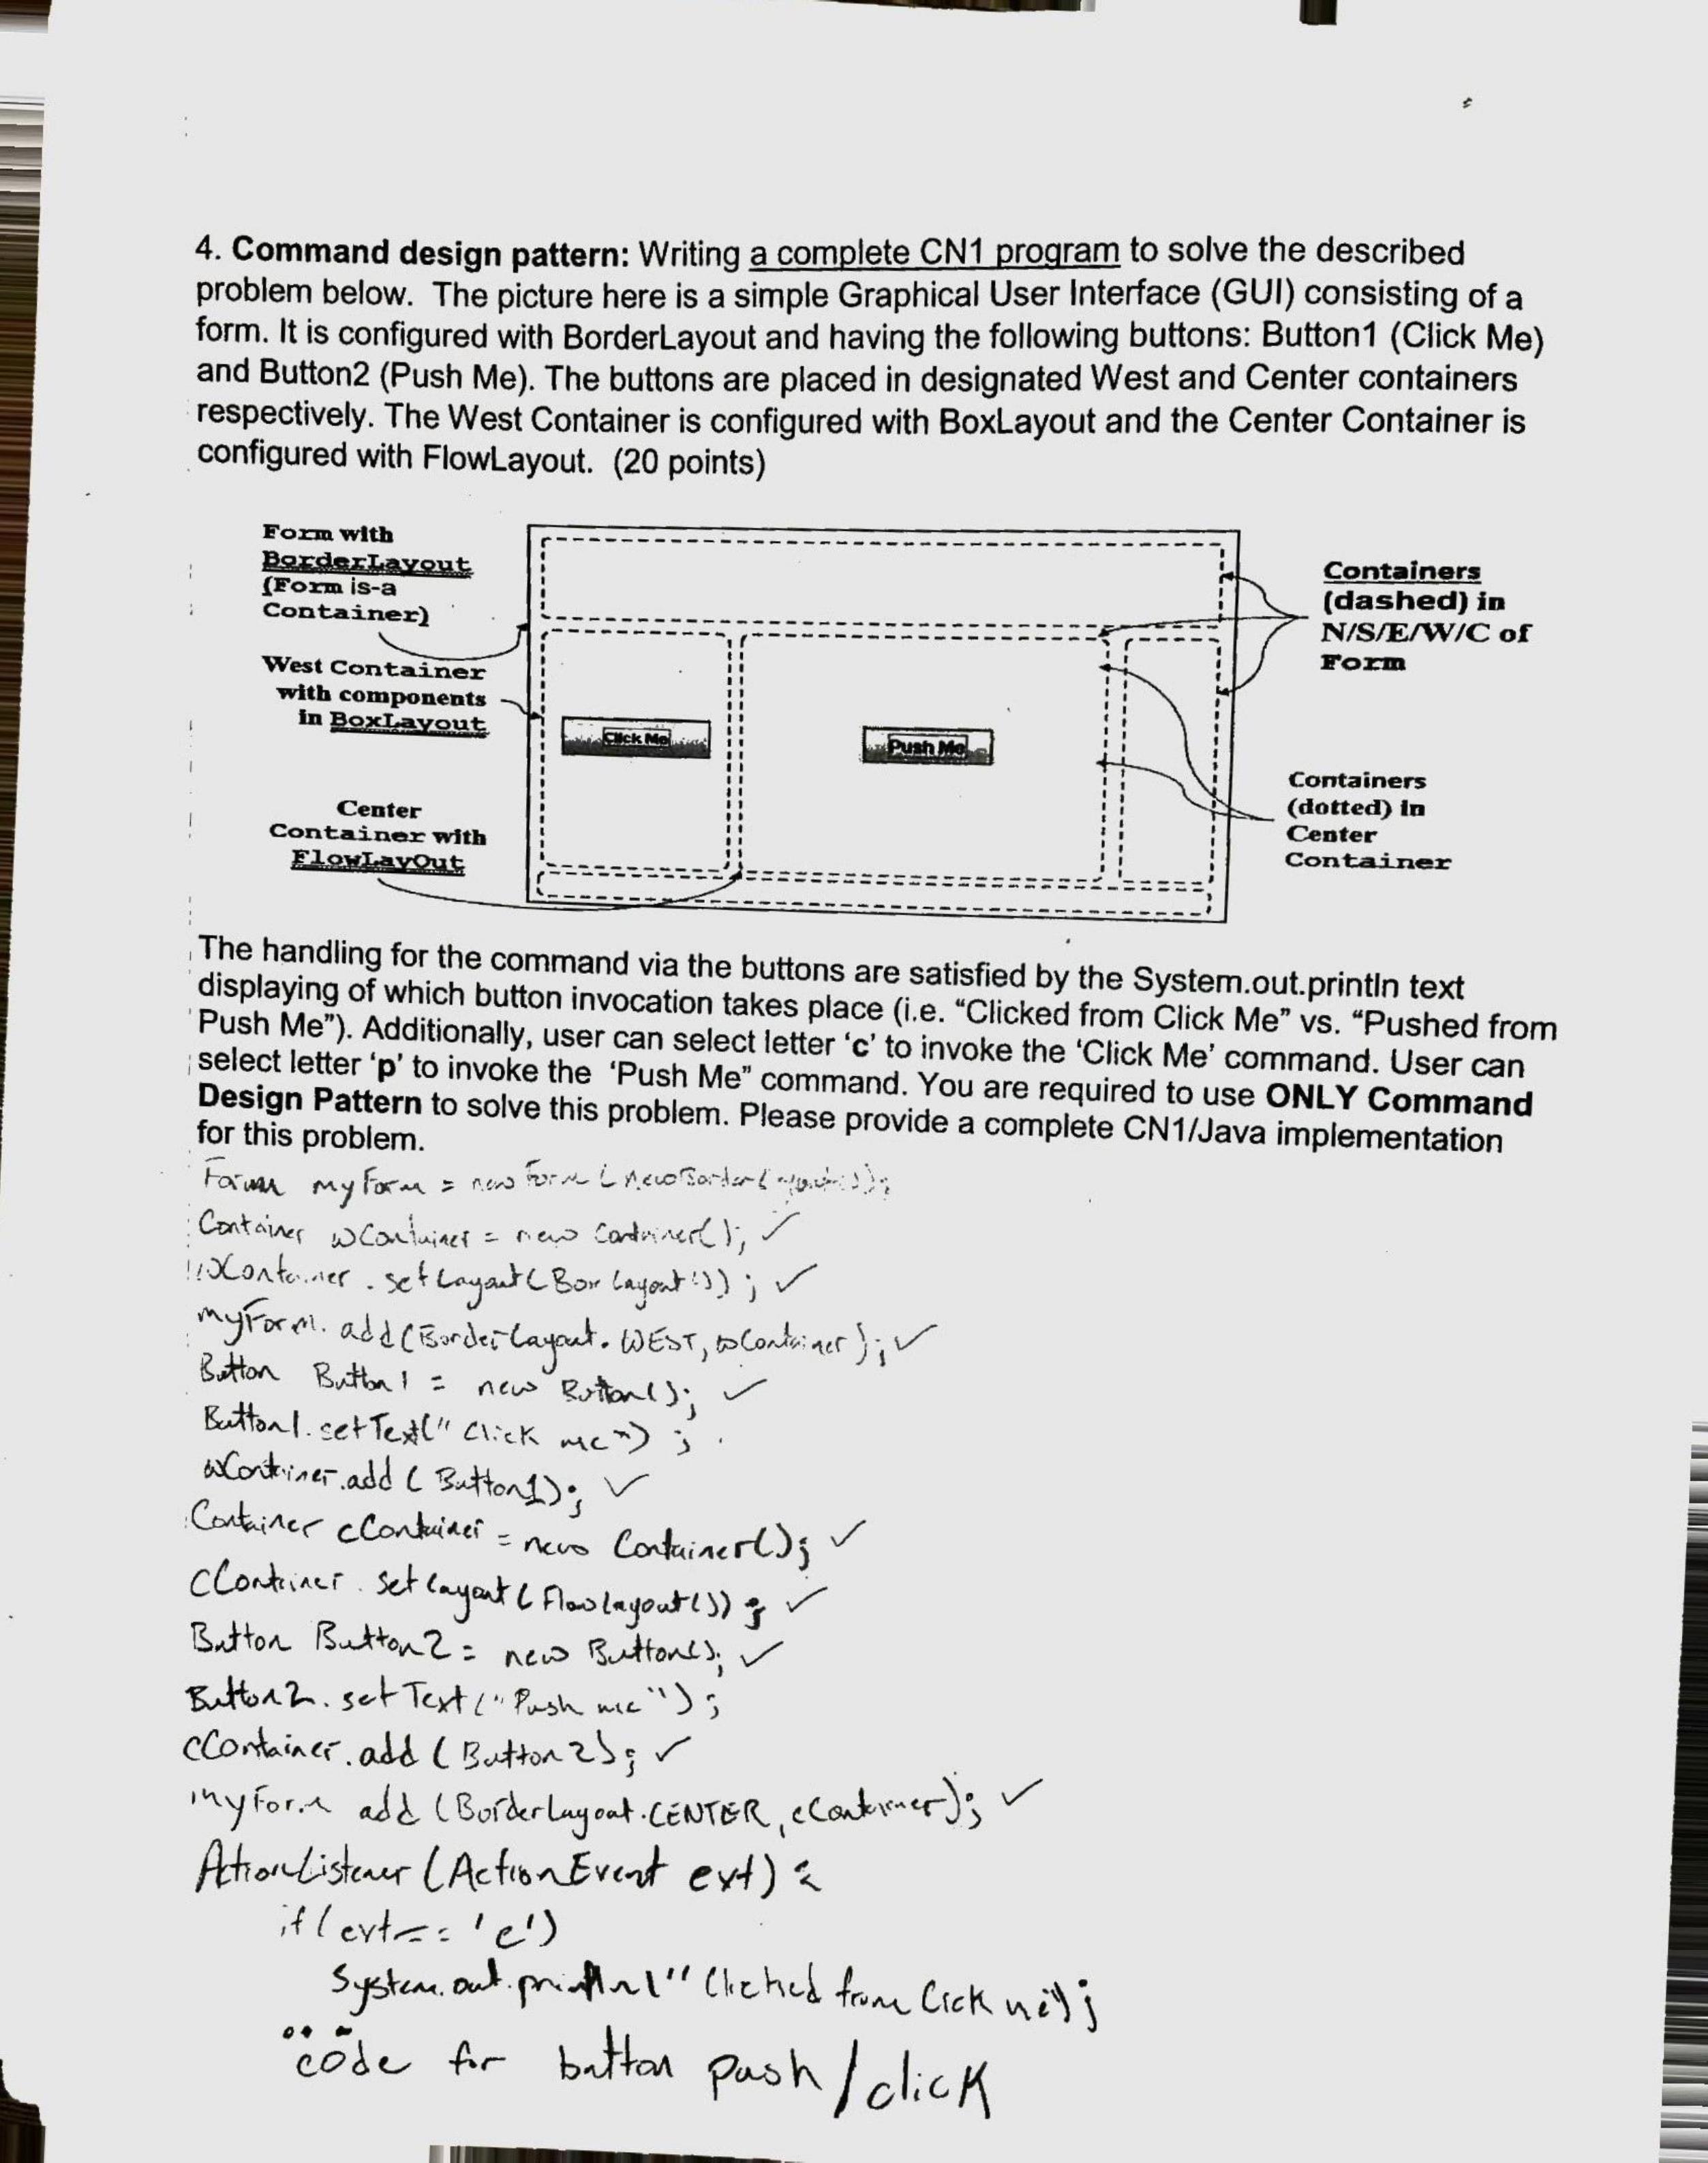 4. Command design pattern: Writing a complete CN1 program to solve the described
problem below. The picture here is a simple Graphical User Interface (GUI) consisting of a
form. It is configured with BorderLayout and having the following buttons: Button1 (Click Me)
and Button2 (Push Me). The buttons are placed in designated West and Center containers
respectively. The West Container is configured with BoxLayout and the Center Container is
configured with FlowLayout. (20 points)
Form with
BorderLayout
(Form is-a
Container)
West Container
with components
in BoxLayout
Center
Container with
FlowLayOut
Click Me
Push Me
Containers
(dashed) in
N/S/E/W/C of
Form
Containers
(dotted) in
Center
Container
The handling for the command via the buttons are satisfied by the System.out.println text
displaying of which button invocation takes place (i.e. “Clicked from Click Me” vs. “Pushed from
Push Me”). Additionally, user can select letter ‘c’ to invoke the ‘Click Me’ command. User can
select letter ‘p’ to invoke the ‘Push Me” command. You are required to use ONLY Command
Design Pattern to solve this problem. Please provide a complete CN1/Java implementation
for this problem.
Form myForm = new Form (new BorderLayout());
Container wContainer = new Container(); ✓
wContainer.setLayout(BoxLayout()); ✓
myForm.add(BorderLayout.WEST, wContainer); ✓
Button Button1 = new Button(); ✓
Button1.setText("Click me");
wContainer.add(Button1); ✓
Container cContainer = new Container(); ✓
cContainer.setLayout(FlowLayout()); ✓
Button Button2 = new Button(); ✓
Button2.setText("Push me");
cContainer.add(Button2); ✓
myForm add(BorderLayout.CENTER, cContainer); ✓
ActionListener(ActionEvent evt) {
if(evt == 'c')
System.out.println("Clicked from Click me");
... code for button push/click